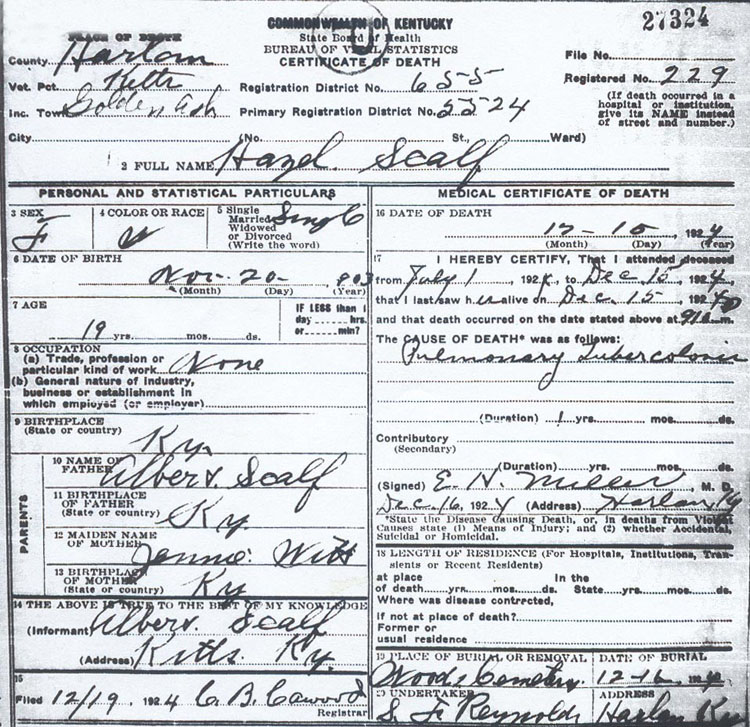 27324
COMMONWEALTH OF KENTUCKY
State Board of Health
BUREAU OF VITAL STATISTICS
CERTIFICATE OF DEATH
PLACE OF DEATH
County Harlan
Vot. Pct. Kitts
Inc. Town Golden Ash
City (No. St., Ward)
Registration District No. 655
Primary Registration District No. 5524
File No.
Registered No. 229
(If death occurred in a
hospital or institution,
give its NAME instead
of street and number.)
2 FULL NAME Hazel Scalf
PERSONAL AND STATISTICAL PARTICULARS
3 SEX F
4 COLOR OR RACE W
5 Single
Married
Widowed
or Divorced
(Write the word) Single
6 DATE OF BIRTH
Nov. 20
(Month) (Day) (Year)
7 AGE
19 yrs. mos. ds.
IF LESS than 1
day hrs.
or min?
8 OCCUPATION
(a) Trade, profession or
particular kind of work None
(b) General nature of industry,
business or establishment in
which employed (or employer)
9 BIRTHPLACE
(State or country) Ky.
PARENTS
10 NAME OF
FATHER Albert Scalf
11 BIRTHPLACE
OF FATHER
(State or country) Ky
12 MAIDEN NAME
OF MOTHER Jennie Witt
13 BIRTHPLACE
OF MOTHER Ky
14 THE ABOVE IS TRUE TO THE BEST OF MY KNOWLEDGE
(Informant) Albert Scalf
(Address) Kitts Ky.
15
Filed 12/19 1924 C. B. Cawood
Registrar
MEDICAL CERTIFICATE OF DEATH
16 DATE OF DEATH
12-15, 1924
(Month) (Day) (Year)
17 I HEREBY CERTIFY, That I attended deceased
from July 1, 1924, to Dec 15, 1924
that I last saw her alive on Dec. 15, 1924
and that death occurred on the date stated above at m.
The CAUSE OF DEATH* was as follows:
Pulmonary Tuberculosis
(Duration) 1 yrs. mos. ds.
Contributory
(Secondary)
(Duration) yrs. mos. ds.
(Signed) E. H. Miller, M. D.
Dec 16, 1924 (Address) Harlan Ky
*State the Disease Causing Death, or, in deaths from Violent
Causes state (1) Means of Injury; and (2) whether Accidental,
Suicidal or Homicidal.
18 LENGTH OF RESIDENCE (For Hospitals, Institutions, Tran-
sients or Recent Residents)
at place In the
of death yrs. mos. ds. State yrs. mos. ds.
Where was disease contracted,
if not at place of death?
Former or
usual residence
19 PLACE OF BURIAL OR REMOVAL DATE OF BURIAL
Woods Cemetery 12-16 1924
20 UNDERTAKER ADDRESS
S. F. Reynolds Harlan Ky